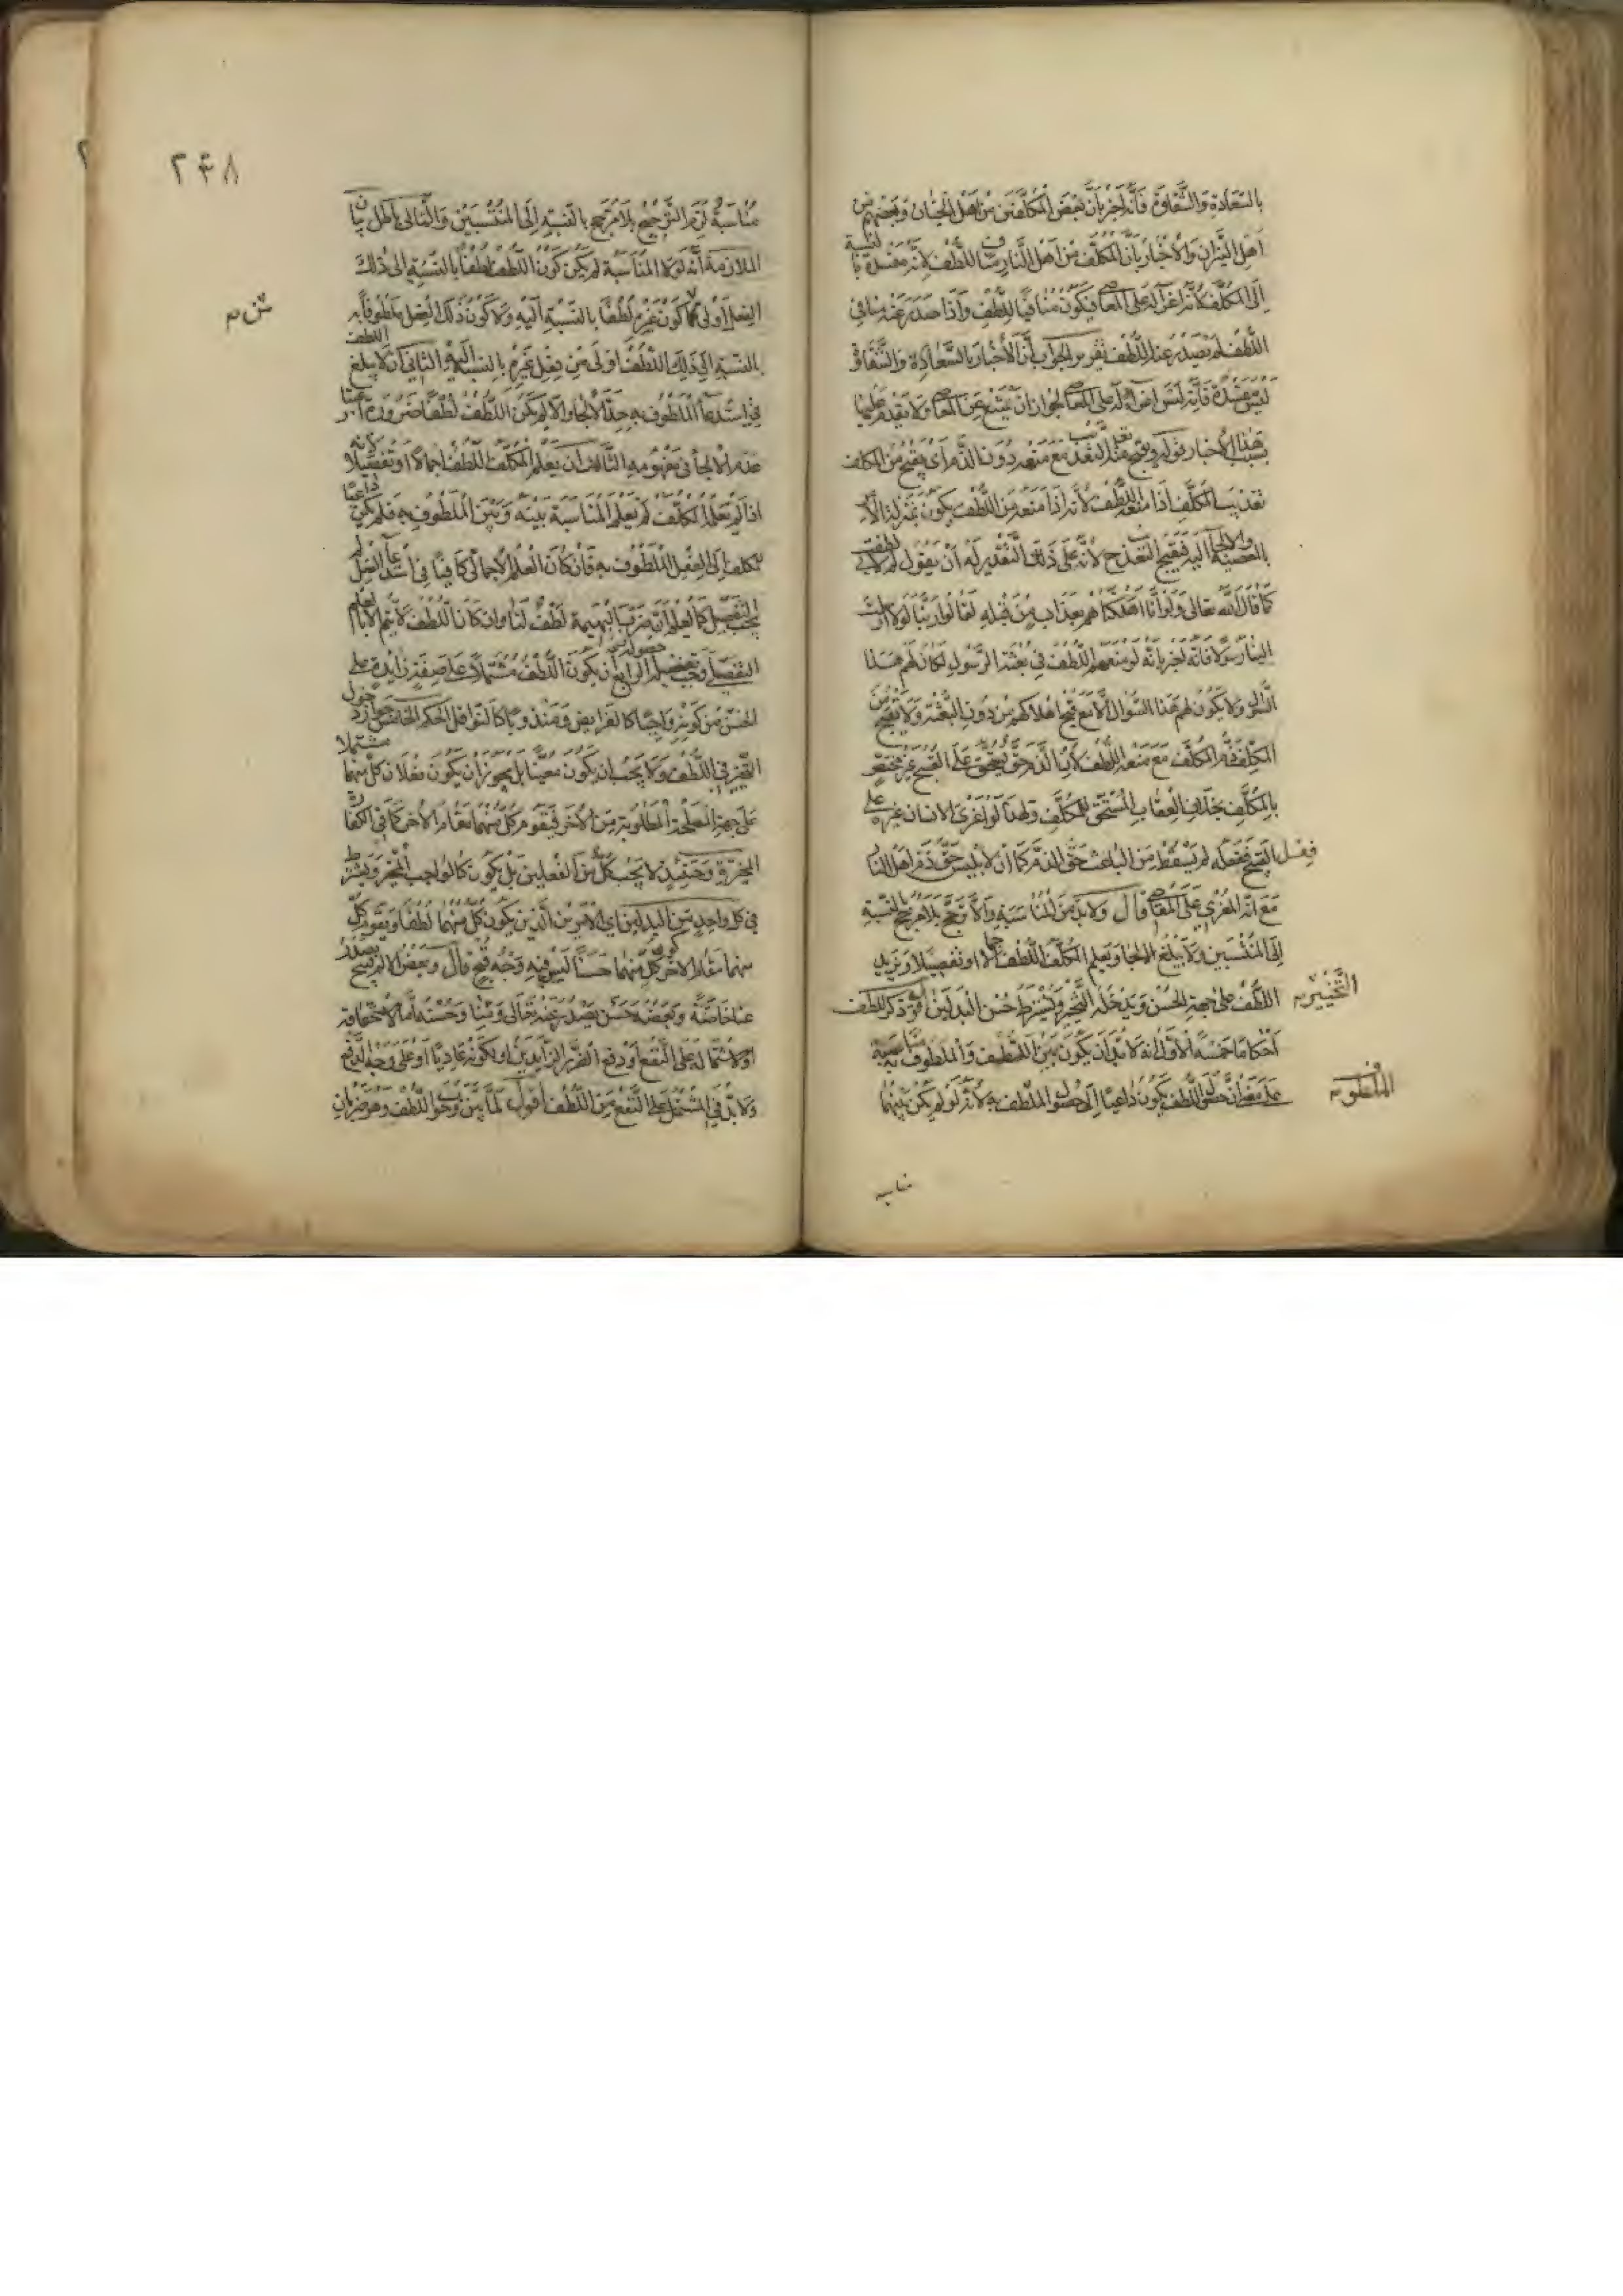 بالسعادة والشقاوة فانه اخبر بان بعض المكلفين من اهل الجنان وبعضهم من
اهل النيران والاخبار بان المكلف من اهل النار ينافى اللطف لانه مفسدة بالنسبة
الى المكلف لانه اغرآ له على المعاصى فيكون منافيا للطف واذا صدر عنه منافى
اللطف لم يصدر عنه اللطف تقرير الجواب ان الاخبار بالسعادة والشقاوة
ليس مفسدة فانه ليس اغرآ له على المعاصى لجواز ان يمتنع عن المعاصى ولا يقدم عليها
بسبب هذا الاخبار قوله ويقبح منه تعالى التعذيب مع منعه دون الذم اى يقبح من المكلف
تعذيب المكلف اذا منعه اللطف لانه اذا منعه من اللطف يكون بمنزلة الامر
بالمعصية والالجاء اليه فيقبح التعذيب لانه على ذلك التقدير له ان يقول لم لا لطفت بى
كما قال الله تعالى ولو انا اهلكناهم بعذاب من قبله لقالوا ربنا لولا ارسلت
الينا رسولا فانه اخبر بانه لو منعهم اللطف فى بعثة الرسول لكان لهم هذا
السؤال ولا يكون لهم هذا السؤال الا مع قبح اهلاكهم من دون البعثة ولا يقبح من
المكلف ذم المكلف مع منعه اللطف لان الذم حق يستحق على القبيح غير مختص
بالمكلف بخلاف العقاب المستحق للمكلف ولهذا لو اغرى الانسان غيره على
فعل القبيح ففعله لم يسقط من الباعث حق الذم كما ان لابليس حق ذم اهل النار
مع انه المغرى على المعاصى قال ولا بد من المناسبة والا ترجح بلا مرجح بالنسبة
الى المنتسبين ولا يبلغ الالجاء ويعلم المكلف اللطف اجمالا او تفصيلا ويزيد
اللطف على جهة الحسن ويدخله التخيير ويشترط حسن البدلين اقول ذكر للطف
التخيير
احكاما خمسة الاول انه لا بد ان يكون بين اللطف والملطوف فيه مناسبة
على معنى ان حصول اللطف يكون داعيا الى حصول الملطف به لانه لو لم يكن بينهما
الملطوف
مناسبة
٢۴٨
مناسبة لزم الترجيح بلا مرجح بالنسبة الى المنتسبين والتالى باطل بيان
الملازمة انه لولا المناسبة لم يكن كون اللطف لطفا بالنسبة الى ذلك
الفعل اولى من كون غيره لطفا بالنسبة اليه ولا كون ذلك الفعل ملطوفا به
بالنسبة الى ذلك اللطف اولى من فعل غيره بالنسبة اليه الثانى ان لا يبلغ اللطف
فى استدعآ الملطوف به حد الالجاء والا لم يكن اللطف لطفا ضرورة اعتبار
عدم الالجاء فى مفهومه الثالث ان يعلم المكلف اللطف اجمالا او تفصيلا لانه
اذا لم يعلم المكلف لم يعلم المناسبة بينه وبين الملطوف به فلم يكن داعيا
للمكلف الى الفعل الملطوف به فان كان العلم الاجمالى كافيا فى استدعآ الفعل لم
يجب التفصيل كما يعلم ان ضرب البهيمة لطف لنا وان كان اللطف لا يتم الا بالعلم
التفصيلى وجب تحصيله الرابع ان يكون اللطف مشتملا على صفة زايدة على
الحسن من كونه واجبا كالفرايض ومندوبا كالنوافل الحكم الخامس جواز دخول
التخيير فى اللطف ولا يجب ان يكون معينا بل يجوز ان يكون فعلان كل منهما مشتملا
على جهة المصلحة المطلوبة من الآخر فيقوم كل منهما مقام الآخر كما فى الكفارة
المخيرة وحينئذ لا يجب كل من الفعلين بل يكون كالواجب المخير ويشترط
فى كل واحد من البدلين اى الامرين الذين يكون كل منهما لطفا ويقوم كل
منهما مقام الآخر كون كل منهما حسنا ليس فيه وجه قبح قال وبعض الالم قبيح يصدر
عنا خاصة وبعضه حسن يصدر عنه تعالى ومنا وحسنه اما لاستحقاقه
او لاشتماله على النفع او دفع الضرر الزايدين او لكونه عاديا او على وجه الدفع
ولا بد فى المشتمل على النفع من اللطف اقول لما بين وجوب اللطف وهو ضربان